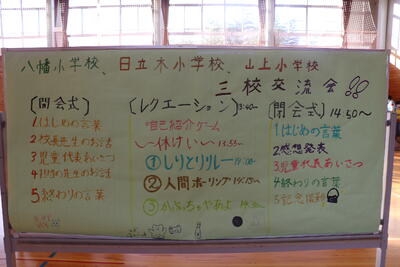 八幡小学校、日立木小学校、山上小学校
三校交流会
〔開会式〕
1はじめの言葉
2校長先生のお話
3児童代表あいさつ
4担当の先生のお話
5終わりの言葉
〔レクエーション〕13:40〜
自己紹介ゲーム
〜休けい〜 13:55〜
①しりとりリレー 14:00〜
②人間ボーリング 14:15〜
〔閉会式〕14:50〜
1はじめの言葉
2感想発表
3児童代表あいさつ
4終わりの言葉
5記念撮影